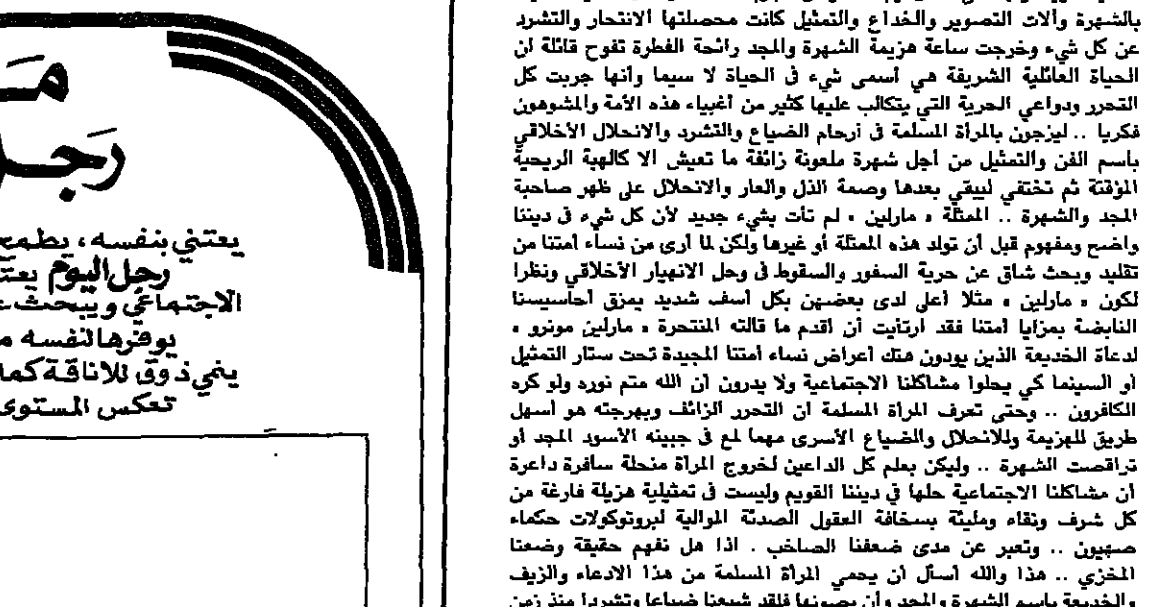 بالشهرة وألات التصوير والخداع والتمثيل كانت محصلتها الانتحار والتشرد
عن كل شيء وخرجت ساعة هزيمة الشهرة والمجد رائحة الفطرة تفوح قائلة ان
الحياة العائلية الشريفة هي أسمى شيء في الحياة لا سيما وأنها جربت كل
التحرر ودواعي الحرية التي يتكالب عليها كثير من أغبياء هذه الأمة والمشوهون
فكريا .. ليزجون بالمرأة المسلمة في أرحام الضياع والتشرد والانحلال الأخلاقي
باسم الفن والتمثيل من أجل شهرة ملعونة زائفة ما تعيش الا كالهبة الريحية
المؤقتة ثم تختفي ليبقي بعدها وصمة الذل والعار والانحلال على ظهر صاحبة
المجد والشهرة .. الممثلة « مارلين » لم تأت بشيء جديد لأن كل شيء في ديننا
واضح ومفهوم قبل أن تولد هذه الممثلة أو غيرها ولكن لما أرى من نساء أمتنا من
تقليد وبحث شاق عن حرية السفور والسقوط في وحل الانهيار الأخلاقي ونظرا
لكون « مارلين » مثلا أعلى لدى بعضهن بكل أسف شديد يمزق أحاسيسنا
النابضة بمزايا أمتنا فقد ارتأيت أن أقدم ما قالته المنتحرة « مارلين مونرو »
لدعاة الخديعة الذين يودون هتك أعراض نساء أمتنا المجيدة تحت ستار التمثيل
أو السينما كي يحلوا مشاكلنا الاجتماعية ولا يدرون أن الله متم نوره ولو كره
الكافرون .. وحتى تعرف المرأة المسلمة ان التحرر الزائف وبهرجته هو أسهل
طريق للهزيمة وللانحلال والضياع الأسرى مهما لمع في جبينه الأسود المجد أو
تراقصت الشهرة .. وليكن بعلم كل الداعين لخروج المرأة منحلة سافرة داعرة
أن مشاكلنا الاجتماعية حلها في ديننا القويم وليست في تمثيلية هزيلة فارغة من
كل شرف ونقاء ومليئة بسخافة العقول الصدئة الموالية لبروتوكولات حكماء
صهيون .. وتعبر عن مدى ضعفنا الصاخب . اذا هل نفهم حقيقة وضعنا
المخزي .. هذا والله أسأل أن يحمي المرأة المسلمة من هذا الادعاء والزيف
والخديعة باسم الشهرة والمجد وأن يصونها فلقد شبعنا ضياعا وتشردا منذ زمن
رجل
يعتني بنفسه، يطمح
رجل اليوم
الاجتماعي ويبحث
يوفرها لنفسه
ينمي ذوق للاناقة كما
تعكس المستوى